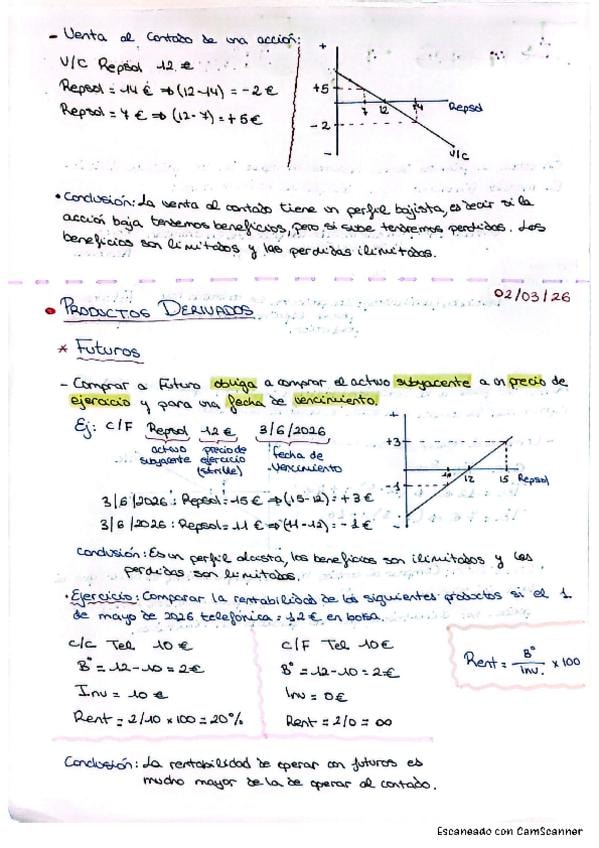 - Venta al contado de una acción:
V/C Repsol 12 €
Repsol = 14 € ⇒ (12-14) = -2 €
Repsol = 7 € ⇒ (12-7) = +5 €
+
+5
7 12 14 Repsol
-2
-
V/C
• Conclusión: La venta al contado tiene un perfil bajista, es decir si la
acción baja tendremos beneficios, pero si sube tendremos perdidas. Los
beneficios son limitados y las perdidas ilimitados.
02/03/26
• PRODUCTOS DERIVADOS
* Futuros
- Comprar a Futuro obliga a comprar el activo subyacente a un precio de
ejercicio y para una fecha de vencimiento.
Ej: C/F Repsol 12 € 3/6/2026
activo subyacente
precio de ejercicio (strike)
fecha de vencimiento
+
+3
11 12 15 Repsol
-1
-
3/6/2026: Repsol = 15 € ⇒ (15-12) = +3 €
3/6/2026: Repsol = 11 € ⇒ (11-12) = -1 €
Conclusión: Es un perfil alcista, los beneficios son ilimitados y las
perdidas son limitados.
• Ejercicio: Comparar la rentabilidad de los siguientes productos si el 1
de mayo de 2026 telefónica = 12 € en bolsa.
C/C Tel 10 €
Bº = 12-10 = 2 €
Inv = 10 €
Rent = 2/10 x 100 = 20%
C/F Tel 10 €
Bº = 12-10 = 2 €
Inv = 0 €
Rent = 2/0 = ∞
Rent = Bº/Inv. x 100
Conclusión: La rentabilidad de operar con futuros es
mucho mayor de la de operar al contado.
Escaneado con CamScanner